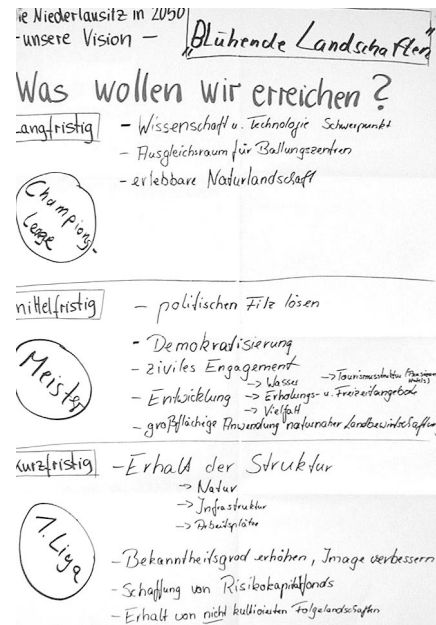 ie Niederlausitz in 2050
- unsere Vision -
"Blühende Landschaften"
Was wollen wir erreichen?
Langfristig
- Wissenschaft u. Technologie Schwerpunkt
- Ausgleichsraum für Ballungszentren
- erlebbare Naturlandschaft
Champions-
Leage
mittelfristig
- politischen Filz lösen
- Demokratisierung
- ziviles Engagement
Meister
- Entwicklung
→ Wasser
→ Tourismusstruktur
→ Erholungs- u. Freizeitangebot
→ Vielfalt
- großflächige Anwendung naturnaher Landbewirtschaftun
kurzfristig
- Erhalt der Struktur
→ Natur
→ Infrastruktur
→ Arbeitsplätze
1. Liga
- Bekanntheitsgrad erhöhen, Image verbessern
- Schaffung von Risikokapitalfonds
- Erhalt von nicht kultivierten Folgelandschaften